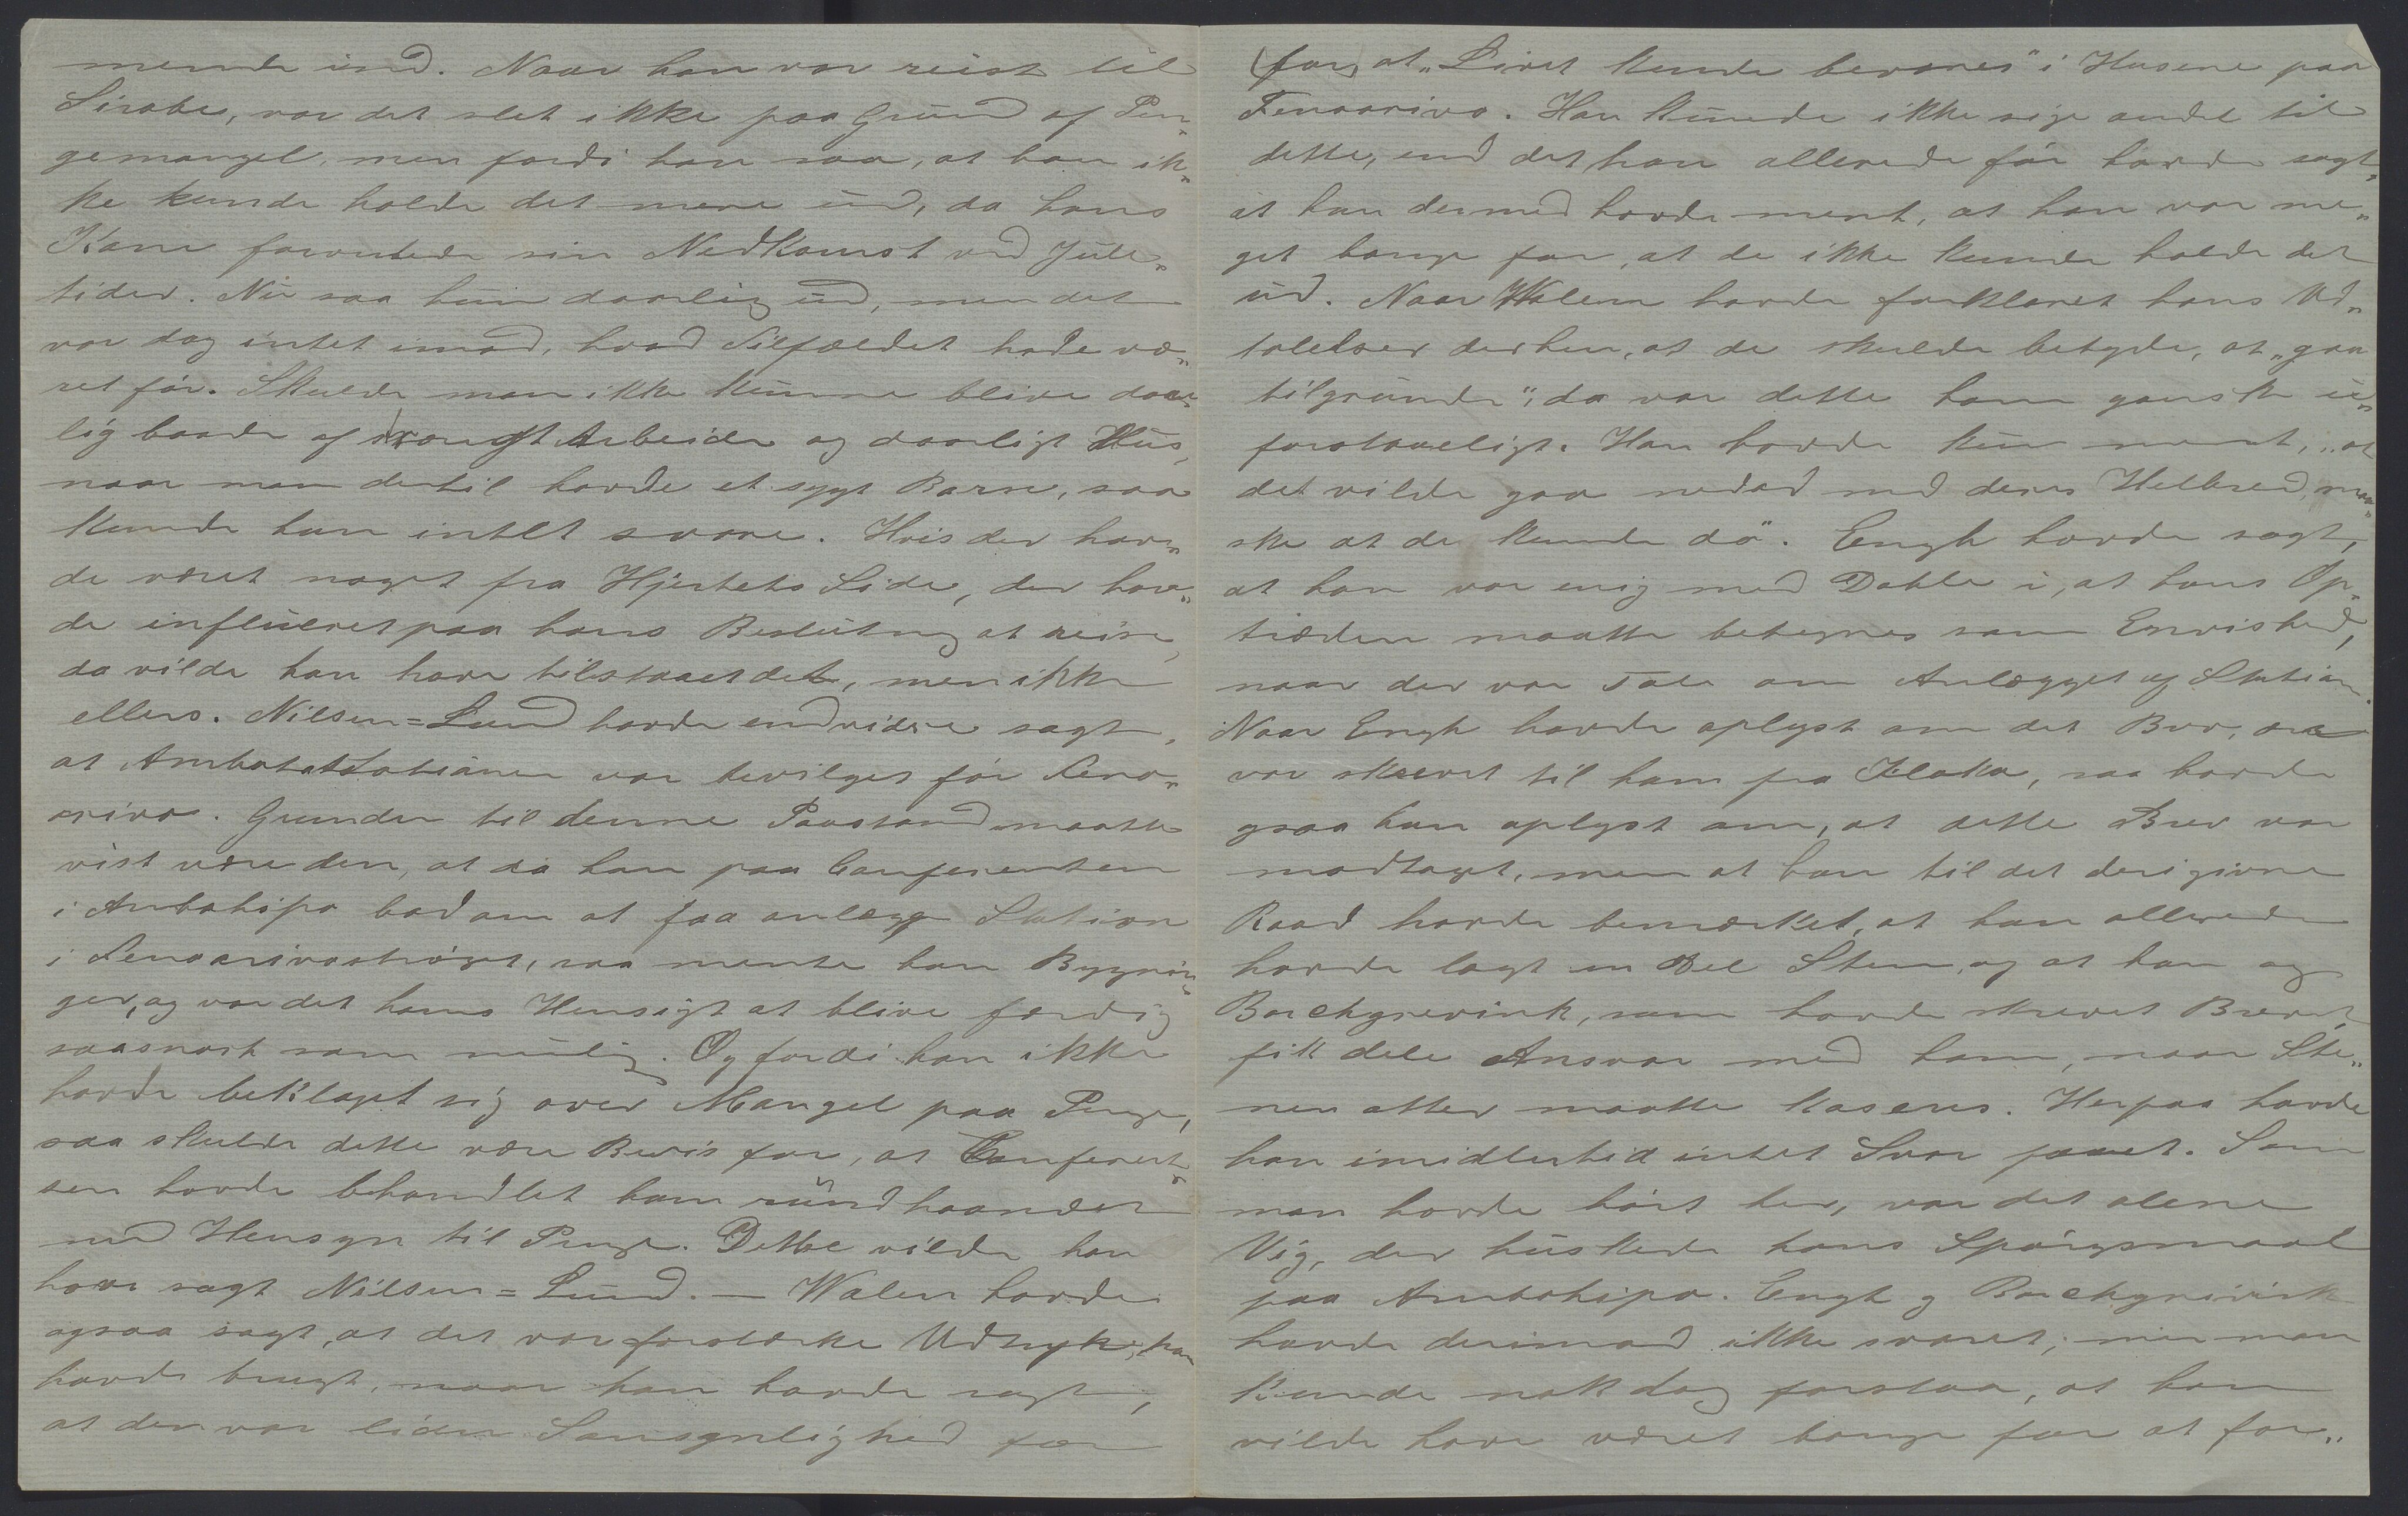 mende ind. Naar han var reist til
Sirabe, var det slet ikke paa Grund af Pen„
gemangel, men fordi han saa, at han ik„
ke kunde holde det mere ud, da hans
Kone forventede sin Nedkomst ved Jule„
tider. Nu saa hun daarlig ud, men det
var dog intet imod, hvad Tilfældet hade væ„
ret før. Skulde man ikke kunne blive daar„
lig baade af strengt Arbeide og daarligt Hus,
naar man dertil havde et sygt Barn, saa
kunde han intet svare. Hvis der hav„
de været noget fra Hjertets Side, der hav„
de influeret paa hans Beslutning at reise,
da vilde han have tilstaaet det, men ikke
ellers. Nilsen=Lund havde endvidere sagt,
at Ambatostationen var bevilget før Feno„
arivo. Grunden til denne Paastand maatte
vist være den, at da han paa Conferentsen
i Ambohipo bad om at faa anlægge Station
i Fenoarivostrøget, saa mente han Bygnin„
ger, og var det hans Hensigt at blive færdig
saasnart som mulig. Og fordi han ikke
havde beklaget sig over Mangel paa Penge,
saa skulde dette være Bevis for, at Conferent„
sen havde behandlet ham rundhaandet
med Hensyn til Penge. Dette vilde han
have sagt Nilsen=Lund. — Walen havde
ogsaa sagt, at det var forstærke Udtryk, han
havde brugt, naar han havde sagt,
at der var liden Sansynlighed for
(for) at „Livet kunde bevares" i Husene paa
Fenoarivo. Han kunde ikke sige andet til
dette, end det han allerede før havde sagt,
at han dermed havde ment, at han var me„
get bange for, at de ikke kunde holde det
ud. Naar Walen havde forklaret hans Ud„
talelser derhen, at de skulde betyde, at „gaa
tilgrunde", da var dette ham ganske u„
forstaaeligt. Han havde kun ment, „at
det vilde gaa nedad med deres Helbred, maa„
ske at de kunde dø". Engh havde sagt,
at han var enig med Dahle i, at hans Op„
træden maatte betegnes som Envished,
naar der var Tale om Anlægget af Station.
Naar Engh havde oplyst om det Brev, der
var skrevet til ham fra Ilaka, saa havde
ogsaa han oplyst om, at dette Brev var
modtaget, men at han til det deri givne
Raad havde bemærket, at han allerede
havde lagt en Del Sten, og at han og
Borchgrevink, som havde skrevet Brevet,
fik dele Ansvar med ham, naar Ste„
nen atter maatte kastes. Herpaa havde
han imidlertid intet Svar faaet. Som
man havde hørt her, var det alene
Vig, der huskede hans Spørgsmaal
paa Ambohipo. Engh og Borchgrevink
havde derimod ikke svaret; men man
kunde nok dog forstaa, at han
vilde have været bange for at for„